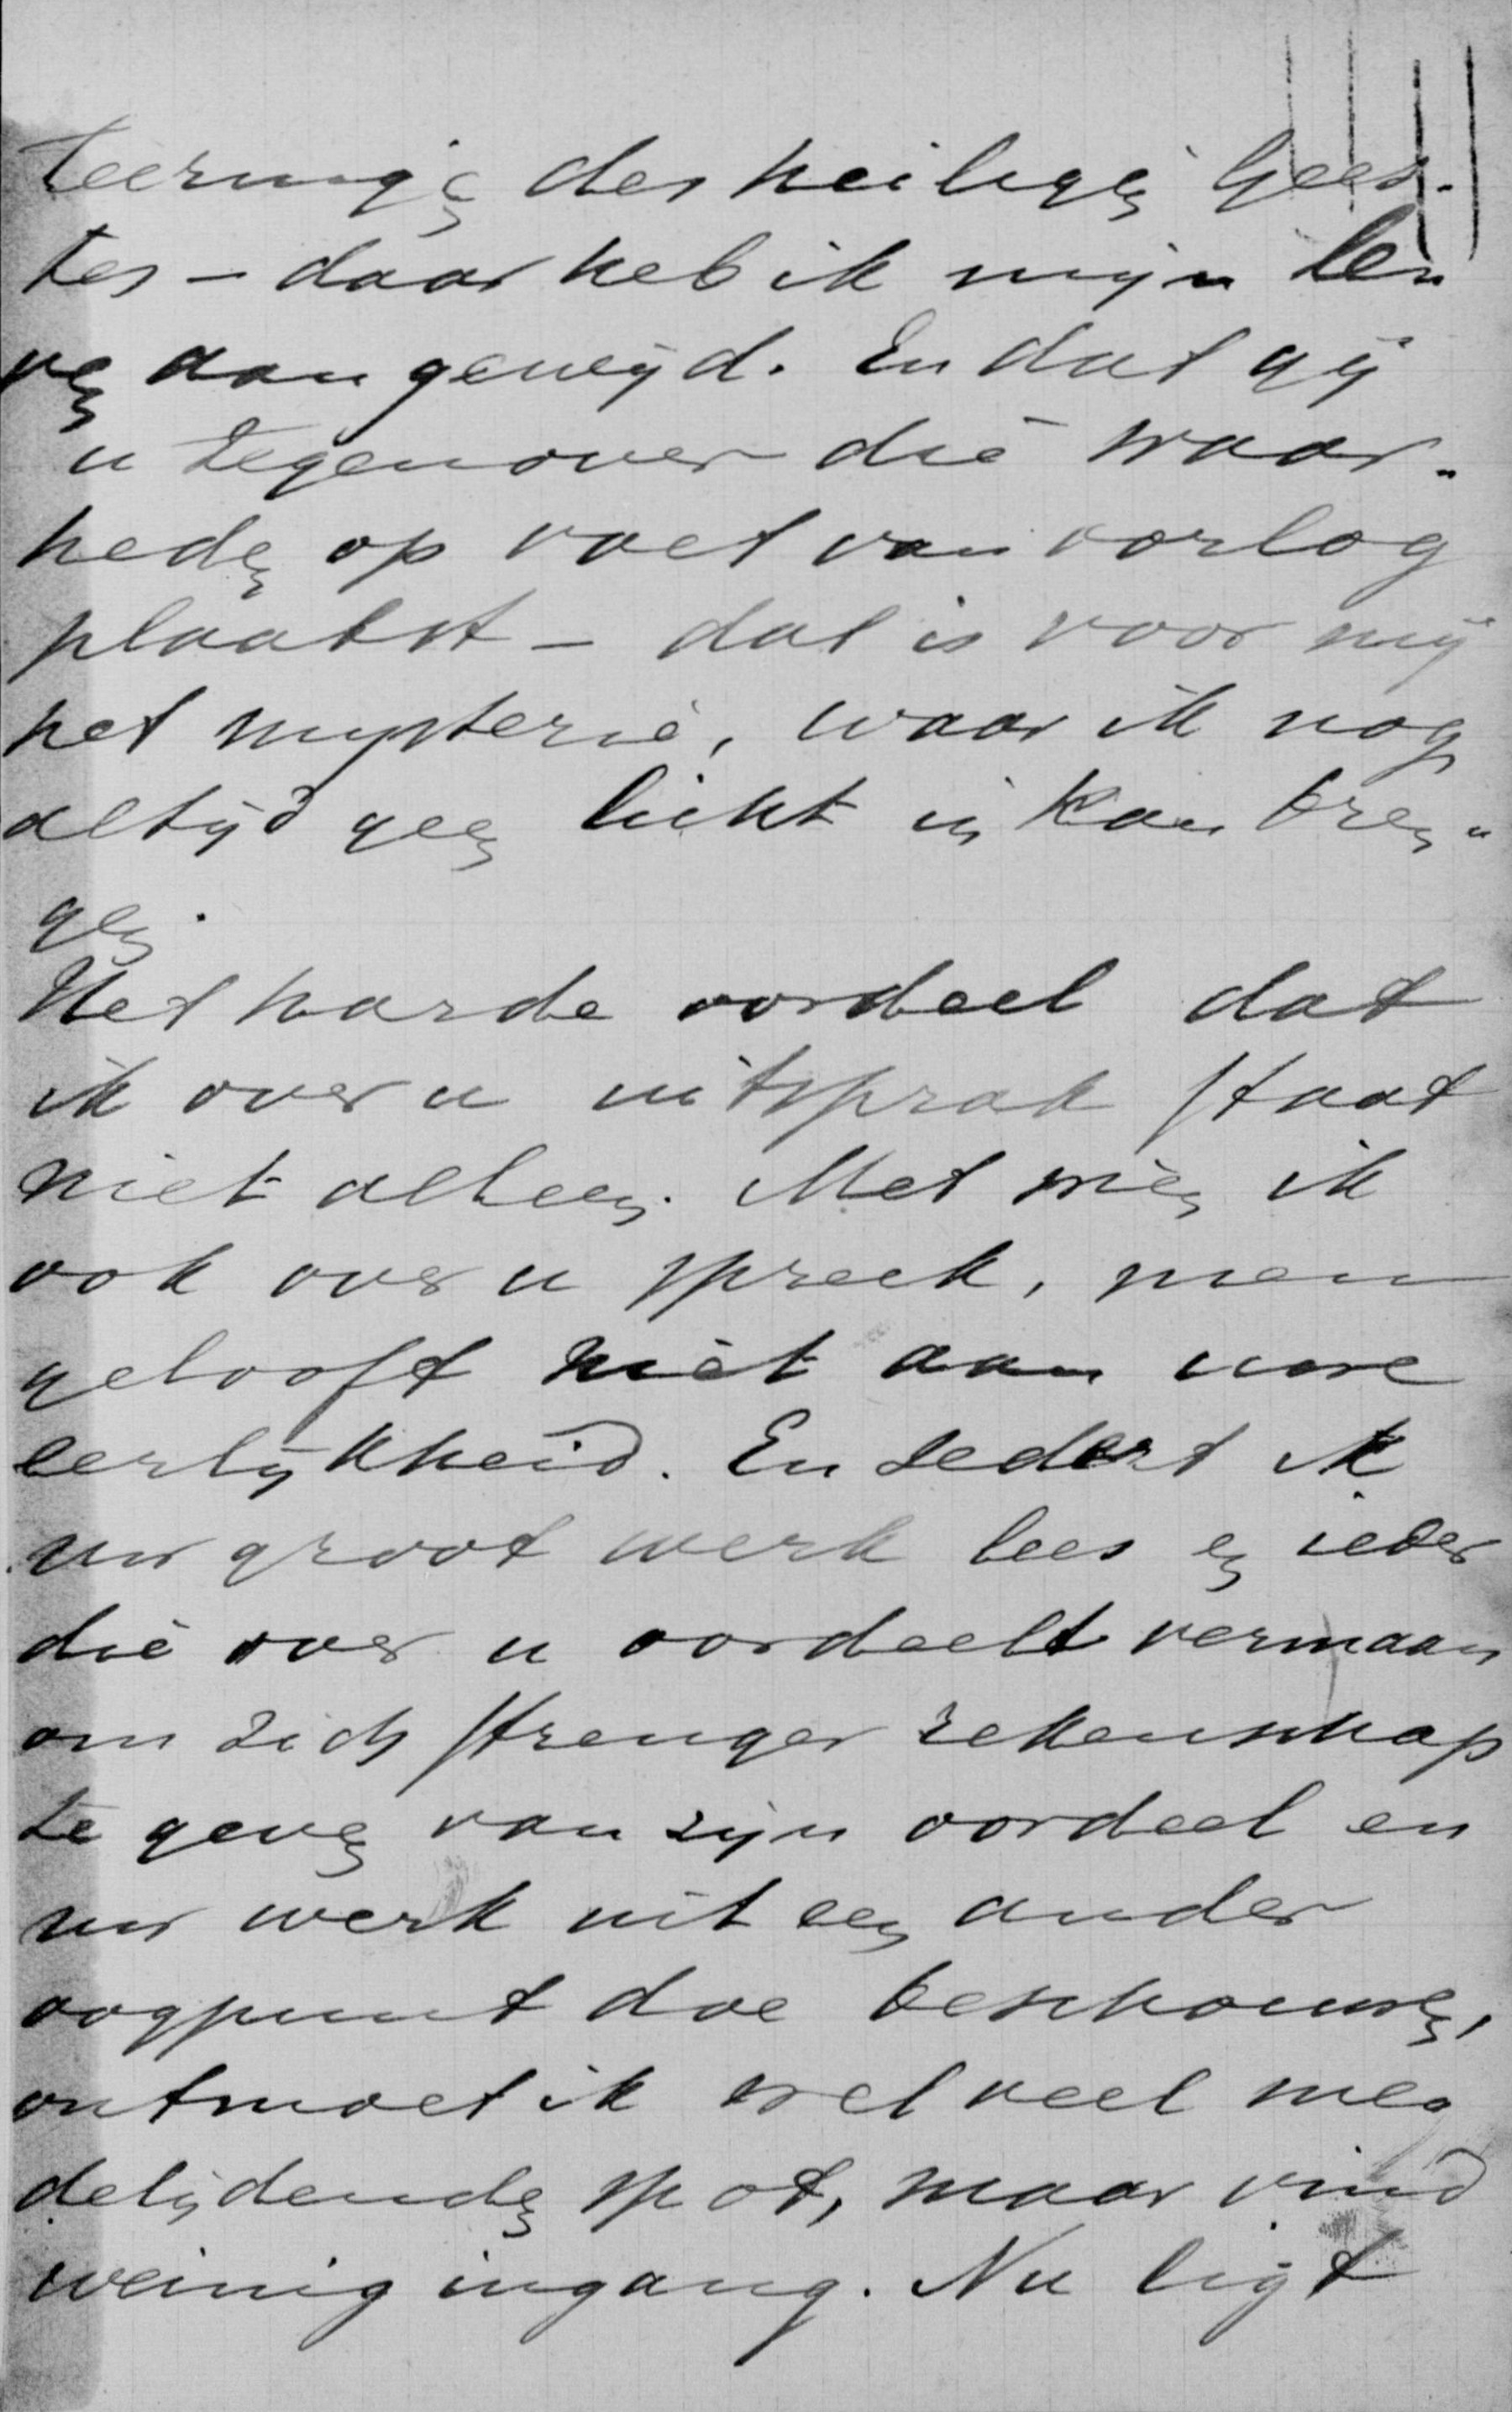 teeringen des heiligen Gees-
tes - daar heb ik mijn le-
ven aan gewijd. En dat gij
u tegenover die waar-
heden op voet van oorlog
plaatst - dat is voor mij
het mysterie, waar ik nog
altijd geen licht in kan bren-
gen.
Het harde oordeel dat
ik over u uitsprak staat
niet alleen. Met wien ik
ook over u spreek, men
gelooft niet aan uwe
eerlijkheid. En sedert ik
uw groot werk lees en ieder
die over u oordeelt vermaan
om zich strenger rekenschap
te geven van zijn oordeel en
uw werk uit een ander
oogpunt doe beschouwen,
ontmoet ik wel veel me-
delijdenden spot, maar vind
weinig ingang. Nu ligt